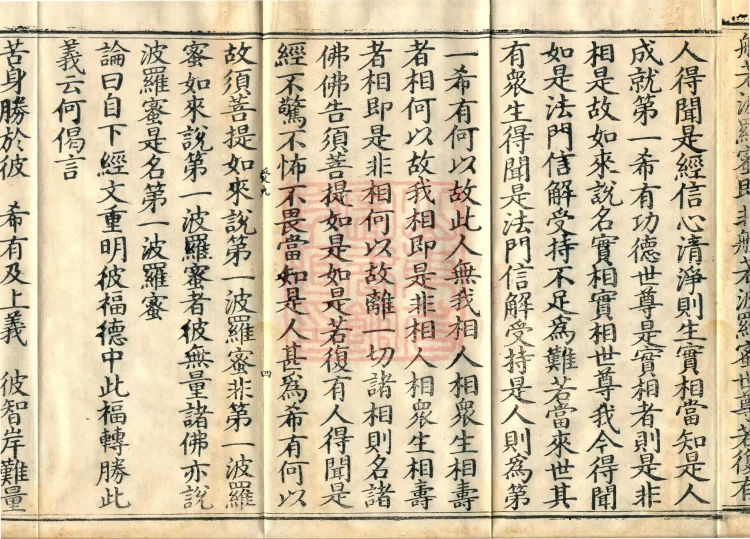 般若波羅蜜即非般若波羅蜜世尊若復有
人得聞是經信心清淨則生實相當知是人
成就第一希有功德世尊是實相者則是非
相是故如來說名實相實相世尊我今得聞
如是法門信解受持不足為難若當來世其
有衆生得聞是法門信解受持是人則為第
一希有何以故此人無我相人相衆生相壽
者相何以故我相即是非相人相衆生相壽
者相即是非相何以故離一切諸相則名諸
佛佛告須菩提如是如是若復有人得聞是
經不驚不怖不畏當知是人甚為希有何以
四
故須菩提如來說第一波羅蜜非第一波羅
蜜如來說第一波羅蜜者彼無量諸佛亦說
波羅蜜是名第一波羅蜜
論曰自下經文重明彼福德中此福轉勝此
義云何偈言
苦身勝於彼 希有及上義 彼智岸難量